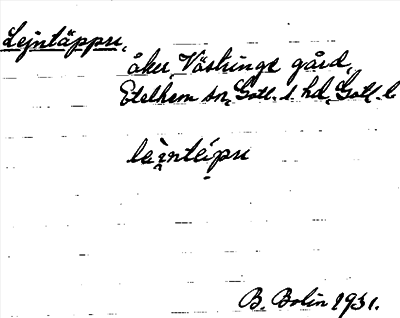 Lejntäppu,
åker, Västringe gård,
Etelhem sn, Gotl. s. hd, Gotl. l
lèi̯ntépu
B. Bolin 1931.